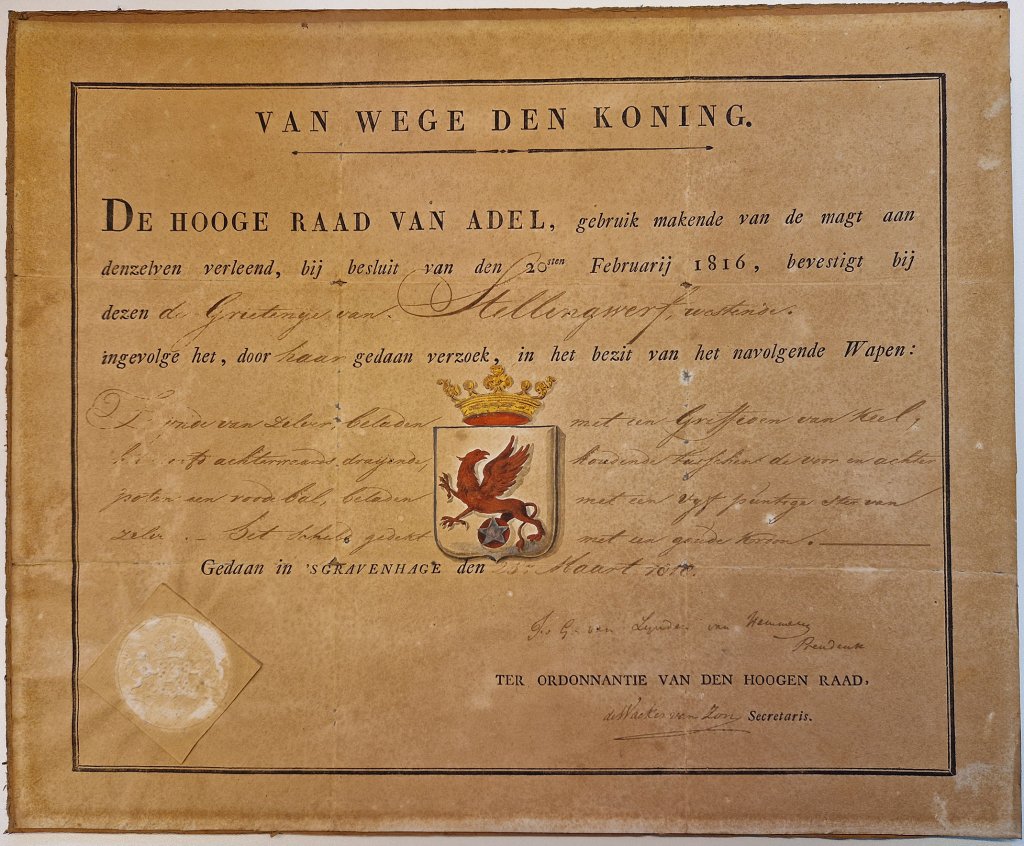 VAN WEGE DEN KONING.
DE HOOGE RAAD VAN ADEL, gebruik makende van de magt aan
denzelven verleend, bij besluit van den 20sten Februarij 1816, bevestigt bij
dezen de Grietenije van Stellingwerf, westeinde.
ingevolge het, door haar gedaan verzoek, in het bezit van het navolgende Wapen:
van zilver, beladen met een Griffioen van keel,
achterwaards draijende, houdende tusschen de voor en achter
poten een roode bal, beladen met een vijf puntige ster van
zilver. – Het schild gedekt met een goude kroon.
Gedaan in 'SGRAVENHAGE den 25n Maart 1818.
van Lynden van Hemmen
President
TER ORDONNANTIE VAN DEN HOOGEN RAAD,
de Wacker van Zon Secretaris.